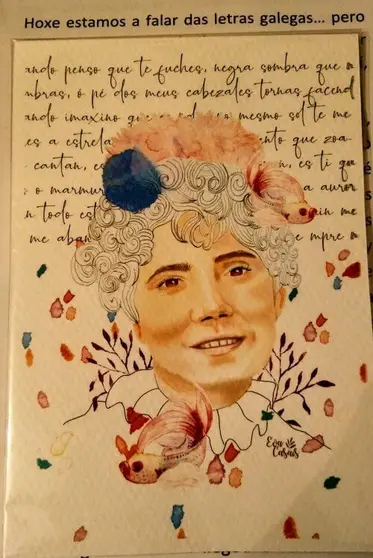 Hoxe estamos a falar das letras galegas... pero
ando penso que te fuches, negra sombra que m
mbras, ó pé dos meus cabezales tornas facend
ando imaxino que mesmo sol te me
es a estrela ento que zoa
cantan, es es ti qu
o marmur a auror
n todo est min me
me aban e mpre m
Eva
Casais